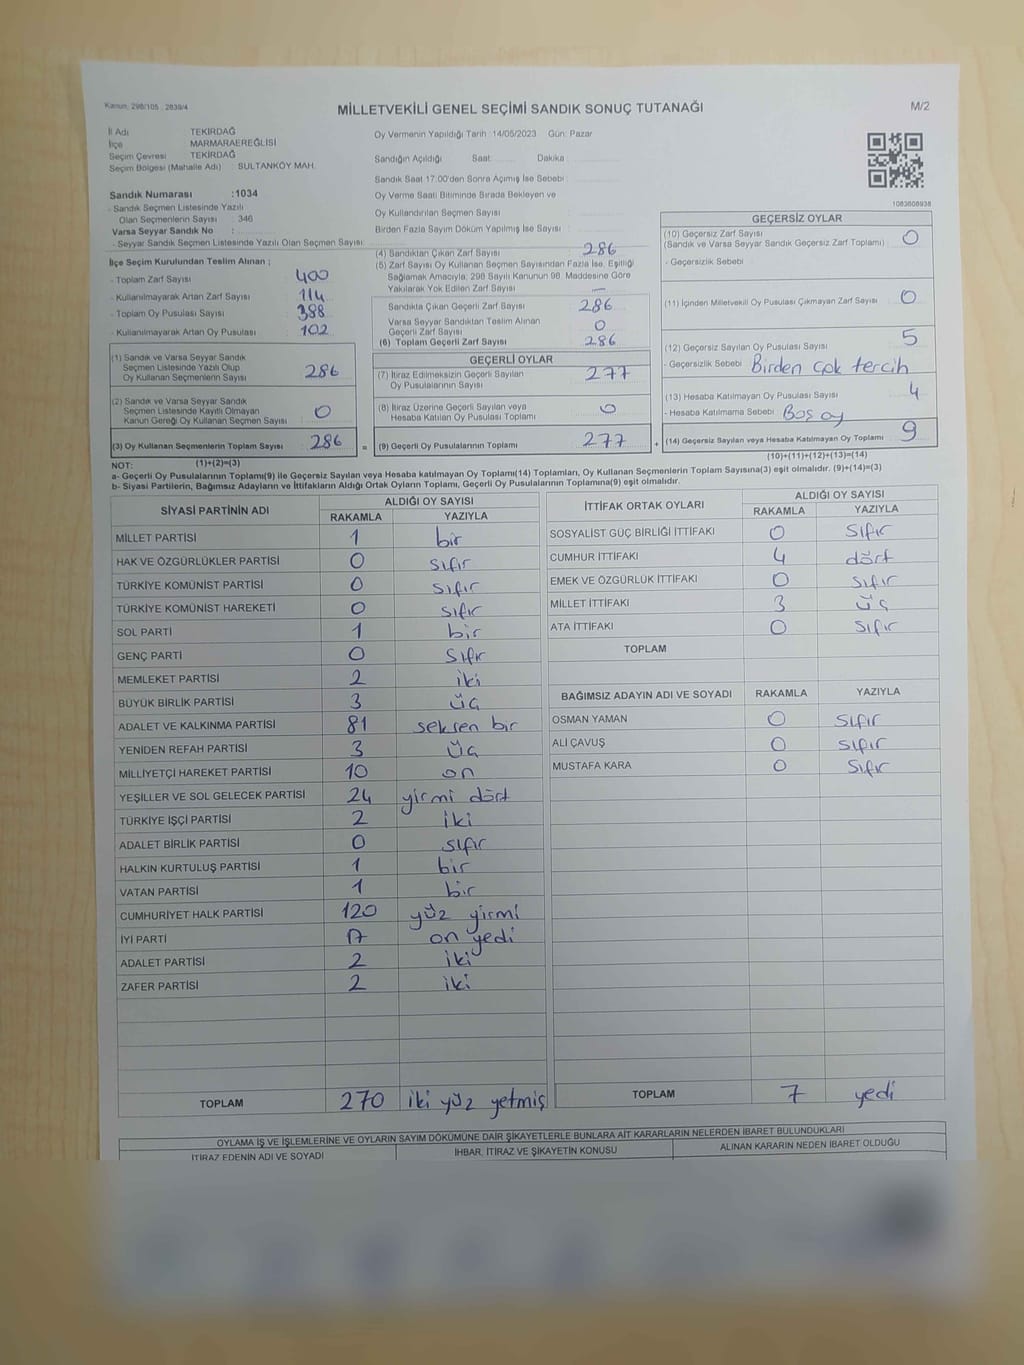 Kanun: 298/105 , 2839/4
MİLLETVEKİLİ GENEL SEÇİMİ SANDIK SONUÇ TUTANAĞI
M/2
İl Adı TEKİRDAĞ
İlçe MARMARAEREĞLİSİ
Seçim Çevresi TEKİRDAĞ
Seçim Bölgesi (Mahalle Adı) : SULTANKÖY MAH.
Sandık Numarası :1034
- Sandık Seçmen Listesinde Yazılı
Olan Seçmenlerin Sayısı : 346
Varsa Seyyar Sandık No :
- Seyyar Sandık Seçmen Listesinde Yazılı Olan Seçmen Sayısı
İlçe Seçim Kurulundan Teslim Alınan ;
- Toplam Zarf Sayısı : 400
- Kullanılmayarak Artan Zarf Sayısı : 114
- Toplam Oy Pusulası Sayısı : 388
- Kullanılmayarak Artan Oy Pusulası : 102
(1) Sandık ve Varsa Seyyar Sandık
Seçmen Listesinde Yazılı Olup
Oy Kullanan Seçmenlerin Sayısı : 286
(2) Sandık ve Varsa Seyyar Sandık
Seçmen Listesinde Kayıtlı Olmayan
Kanun Gereği Oy Kullanan Seçmen Sayısı : 0
(3) Oy Kullanan Seçmenlerin Toplam Sayısı : 286 =
(1)+(2)=(3)
Oy Vermenin Yapıldığı Tarih :14/05/2023 Gün: Pazar
Sandığın Açıldığı Saat: Dakika :
Sandık Saat 17.00'den Sonra Açımış İse Sebebi :
Oy Verme Saati Bitiminde Sırada Bekleyen ve
Oy Kullandırılan Seçmen Sayısı :
Birden Fazla Sayım Döküm Yapılmış İse Sayısı :
(4) Sandıktan Çıkan Zarf Sayısı : 286
(5) Zarf Sayısı Oy Kullanan Seçmen Sayısından Fazla İse, Eşitliği
Sağlamak Amacıyla; 298 Sayılı Kanunun 98. Maddesine Göre
Yakılarak Yok Edilen Zarf Sayısı : —
Sandıkta Çıkan Geçerli Zarf Sayısı : 286
Varsa Seyyar Sandıktan Teslim Alınan
Geçerli Zarf Sayısı : 0
(6) Toplam Geçerli Zarf Sayısı : 286
GEÇERLİ OYLAR
(7) İtiraz Edilmeksizin Geçerli Sayılan
Oy Pusulalarının Sayısı : 277
(8) İtiraz Üzerine Geçerli Sayılan veya
Hesaba Katılan Oy Pusulası Toplamı : 0
(9) Geçerli Oy Pusulalarının Toplamı : 277 +
1083608938
GEÇERSİZ OYLAR
(10) Geçersiz Zarf Sayısı
(Sandık ve Varsa Seyyar Sandık Geçersiz Zarf Toplamı) : 0
- Geçersizlik Sebebi :
(11) İçinden Milletvekili Oy Pusulası Çıkmayan Zarf Sayısı : 0
(12) Geçersiz Sayılan Oy Pusulası Sayısı : 5
- Geçersizlik Sebebi : Birden çok tercih
(13) Hesaba Katılmayan Oy Pusulası Sayısı : 4
- Hesaba Katılmama Sebebi : Boş oy
(14) Geçersiz Sayılan veya Hesaba Katılmayan Oy Toplamı : 9
(10)+(11)+(12)+(13)=(14)
NOT:
a- Geçerli Oy Pusulalarının Toplamı(9) ile Geçersiz Sayılan veya Hesaba katılmayan Oy Toplamı(14) Toplamları, Oy Kullanan Seçmenlerin Toplam Sayısına(3) eşit olmalıdır. (9)+(14)=(3)
b- Siyasi Partilerin, Bağımsız Adayların ve İttifakların Aldığı Ortak Oyların Toplamı, Geçerli Oy Pusulalarının Toplamına(9) eşit olmalıdır.
SİYASİ PARTİNİN ADI ALDIĞI OY SAYISI
RAKAMLA YAZIYLA
MİLLET PARTİSİ 1 bir
HAK VE ÖZGÜRLÜKLER PARTİSİ 0 sıfır
TÜRKİYE KOMÜNİST PARTİSİ 0 sıfır
TÜRKİYE KOMÜNİST HAREKETİ 0 sıfır
SOL PARTİ 1 bir
GENÇ PARTİ 0 sıfır
MEMLEKET PARTİSİ 2 iki
BÜYÜK BİRLİK PARTİSİ 3 üç
ADALET VE KALKINMA PARTİSİ 81 seksen bir
YENİDEN REFAH PARTİSİ 3 üç
MİLLİYETÇİ HAREKET PARTİSİ 10 on
YEŞİLLER VE SOL GELECEK PARTİSİ 24 yirmi dört
TÜRKİYE İŞÇİ PARTİSİ 2 iki
ADALET BİRLİK PARTİSİ 0 sıfır
HALKIN KURTULUŞ PARTİSİ 1 bir
VATAN PARTİSİ 1 bir
CUMHURİYET HALK PARTİSİ 120 yüz yirmi
İYİ PARTİ 17 on yedi
ADALET PARTİSİ 2 iki
ZAFER PARTİSİ 2 iki
TOPLAM 270 iki yüz yetmiş
İTTİFAK ORTAK OYLARI ALDIĞI OY SAYISI
RAKAMLA YAZIYLA
SOSYALİST GÜÇ BİRLİĞİ İTTİFAKI 0 sıfır
CUMHUR İTTİFAKI 4 dört
EMEK VE ÖZGÜRLÜK İTTİFAKI 0 sıfır
MİLLET İTTİFAKI 3 üç
ATA İTTİFAKI 0 sıfır
TOPLAM
BAĞIMSIZ ADAYIN ADI VE SOYADI RAKAMLA YAZIYLA
OSMAN YAMAN 0 sıfır
ALİ ÇAVUŞ 0 sıfır
MUSTAFA KARA 0 sıfır
TOPLAM 7 yedi
OYLAMA İŞ VE İŞLEMLERİNE VE OYLARIN SAYIM DÖKÜMÜNE DAİR ŞİKAYETLERLE BUNLARA AİT KARARLARIN NELERDEN İBARET BULUNDUKLARI
İTİRAZ EDENİN ADI VE SOYADI İHBAR, İTİRAZ VE ŞİKAYETİN KONUSU ALINAN KARARIN NEDEN İBARET OLDUĞU